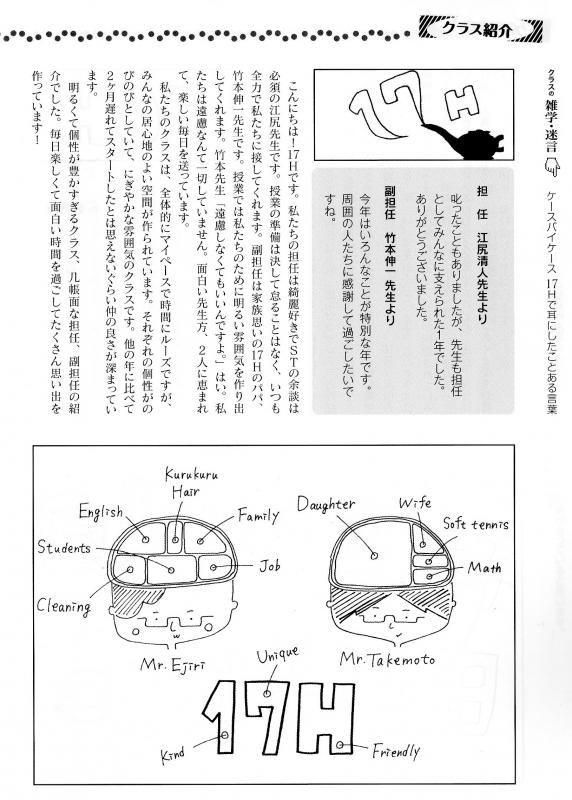 クラス紹介
クラスの 雑学・迷言 ケースバイケース 17Hで耳にしたことある言葉
17H
担　任　江尻清人先生より
叱ったこともありましたが、先生も担任
としてみんなに支えられた1年でした。
ありがとうございました。
副担任　竹本伸一 先生より
今年はいろんなことが特別な年です。
周囲の人たちに感謝して過ごしたいで
すね。
こんにちは！17Hです。私たちの担任は綺麗好きでSTの余談は
必須の江尻先生です。授業の準備は決して怠ることはなく、いつも
全力で私たちに接してくれます。副担任は家族思いの17Hのパパ、
竹本伸一先生です。授業では私たちのために明るい雰囲気を作り出
してくれます。竹本先生「遠慮しなくてもいいんですよ。」はい。私
たちは遠慮なんて一切していません。面白い先生方、2人に恵まれ
て、楽しい毎日を送っています。
私たちのクラスは、全体的にマイペースで時間にルーズですが、
みんなの居心地のよい空間が作られています。それぞれの個性がの
びのびとしていて、にぎやかな雰囲気のクラスです。他の年に比べて
2ヶ月遅れてスタートしたとは思えないぐらい仲の良さが深まってい
ます。
明るくて個性が豊かすぎるクラス、几帳面な担任、副担任の紹
介でした。毎日楽しくて面白い時間を過ごしてたくさん思い出を
作っています！
Kurukuru
Hair
English
Family
Students
Job
Cleaning
Mr. Ejiri
Daughter
Wife
Soft tennis
Math
Mr. Takemoto
Unique
17H
Kind
Friendly